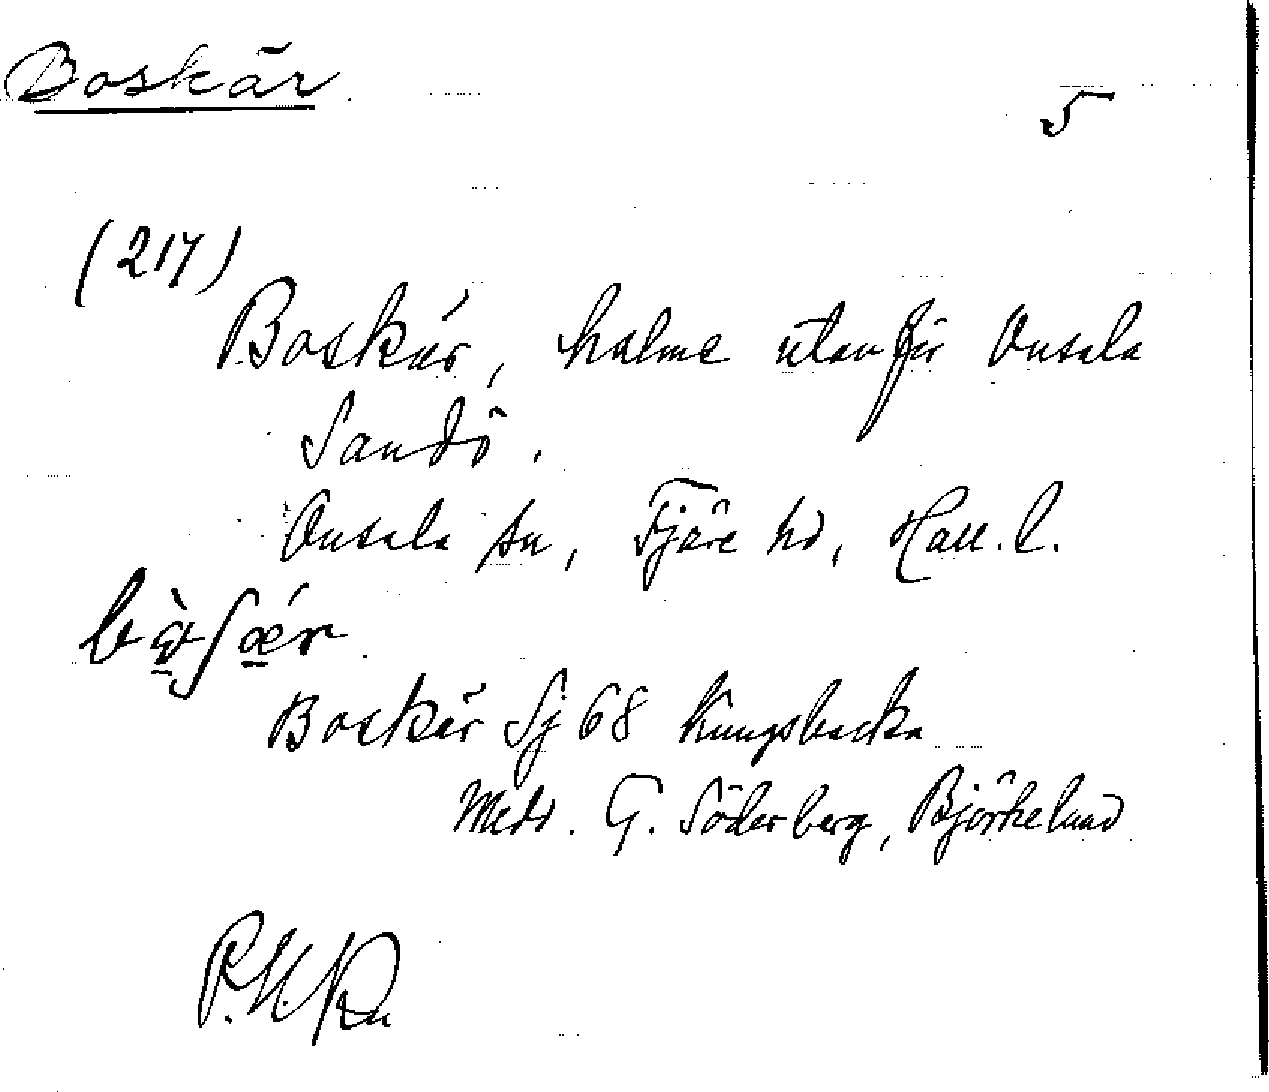 Boskär
5
(217)
Boskär, holme utanför Onsala
Sandö.
Onsala sn, Fjäre hd, Hall. l.
Boskär Sj 68 Kungsbacka
Medd. G. Söderberg, Björkelund